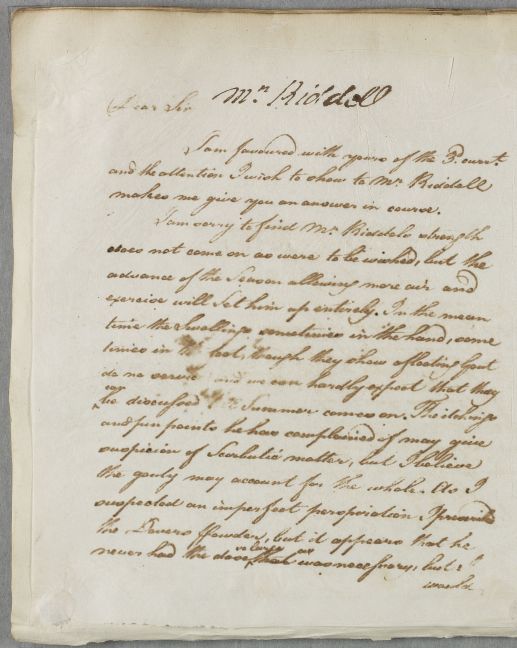 Dear Sir Mr. Riddell
I am favoured with yours of the 3d. curt.
and the attention I wish to show to Mr. Riddall
makes me give you an answer in course.
I am sorry to find Mr. Riddels strength
does not come on as were to be wished, but the
advance of the Season allowing more air and
exercise will set him up entirely. In the mean
time the Swellings sometimes in the hand, some
times in the foot, though they show a floating Gout
do no service and we can hardly expect that they
can be discussed till Summer comes on. The itchings
and pun points he has complained of may give
suspicion of Scorbutic matter, but I believe
the gouty may account for the whole. As I
suspected an imperfect perspiration I
the Dovers Powder, but it appears that he
never had the dose that was necessary, but I
would